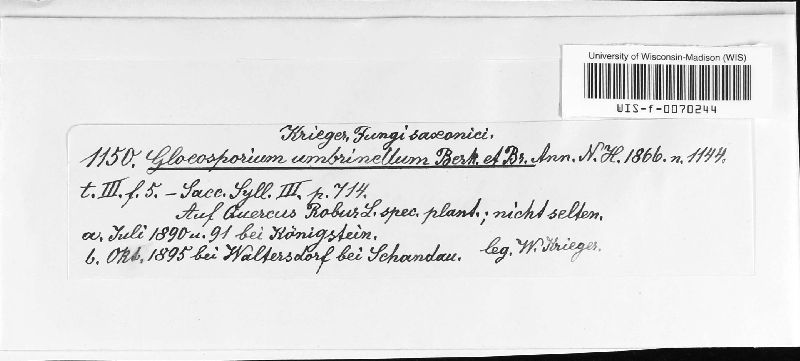 University of Wisconsin-Madison (WIS)
WIS-f-0070244
Krieger, Fungi saxonici.
1150. Gloeosporium umbrinellum Berk. et Br. Ann. N. H. 1866. n. 1144.
t. III. f. 5. – Sacc. Syll. III. p. 714.
Auf Quercus Robur L. spec. plant.; nicht selten.
a. Juli 1890 u. 91 bei Königstein.
b. Okt. 1895 bei Waltersdorf bei Schandau. leg. W. Krieger.